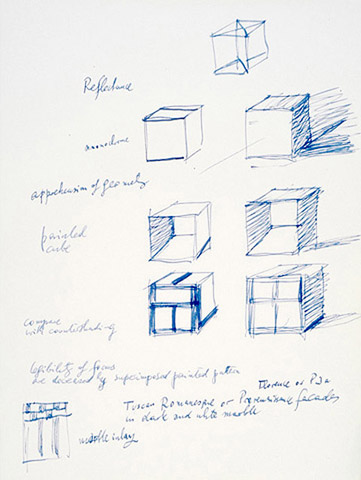 Reflectance
monochrome
apprehension of geometry
painted
cube
compare
with counter shading
legibility of forms
be decreased by superimposed painted pattern
Florence or Pisa
Tuscan Romanesque or Protorenaissance facades
in dark and white marble
marble inlay